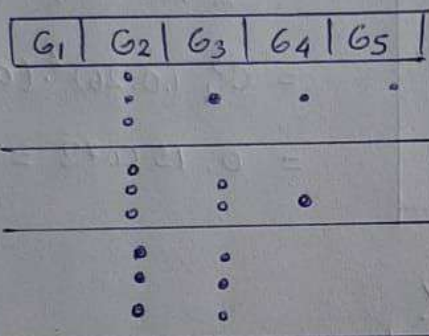 G1 | G2 | G3 | G4 | G5 |